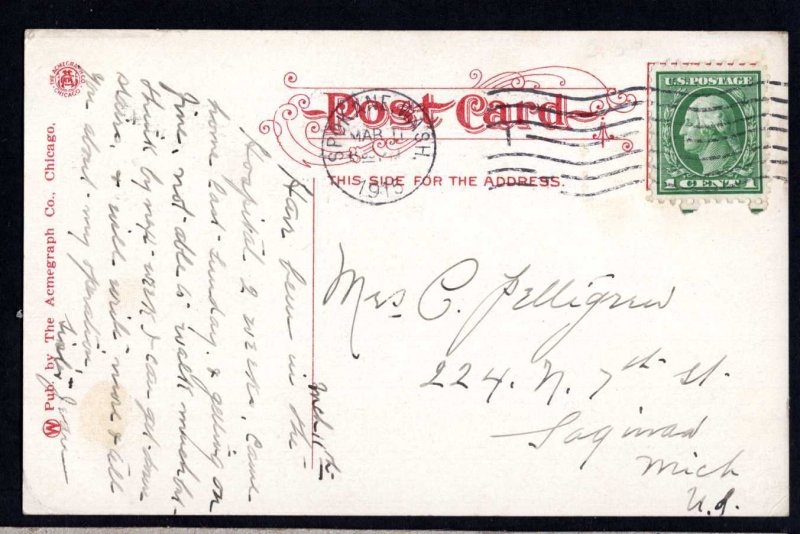 THE ACMEGRAPH CO.
CHICAGO
Pub. by The Acmegraph Co., Chicago.
Post Card
THIS SIDE FOR THE ADDRESS.
SPOKANE WASH.
MAR 11
1915
U.S. POSTAGE
1 CENT 1
Mch 11th
Hav been in the
Hospital 2 weeks. Came
home last Sunday & getting on
fine, not able to walk much but
think by next week I can get down
stairs, & will write more & tell
you about my operation
Mrs C. Pelligrew
224 N. 7th St.
Saginaw
Mich
U.S.